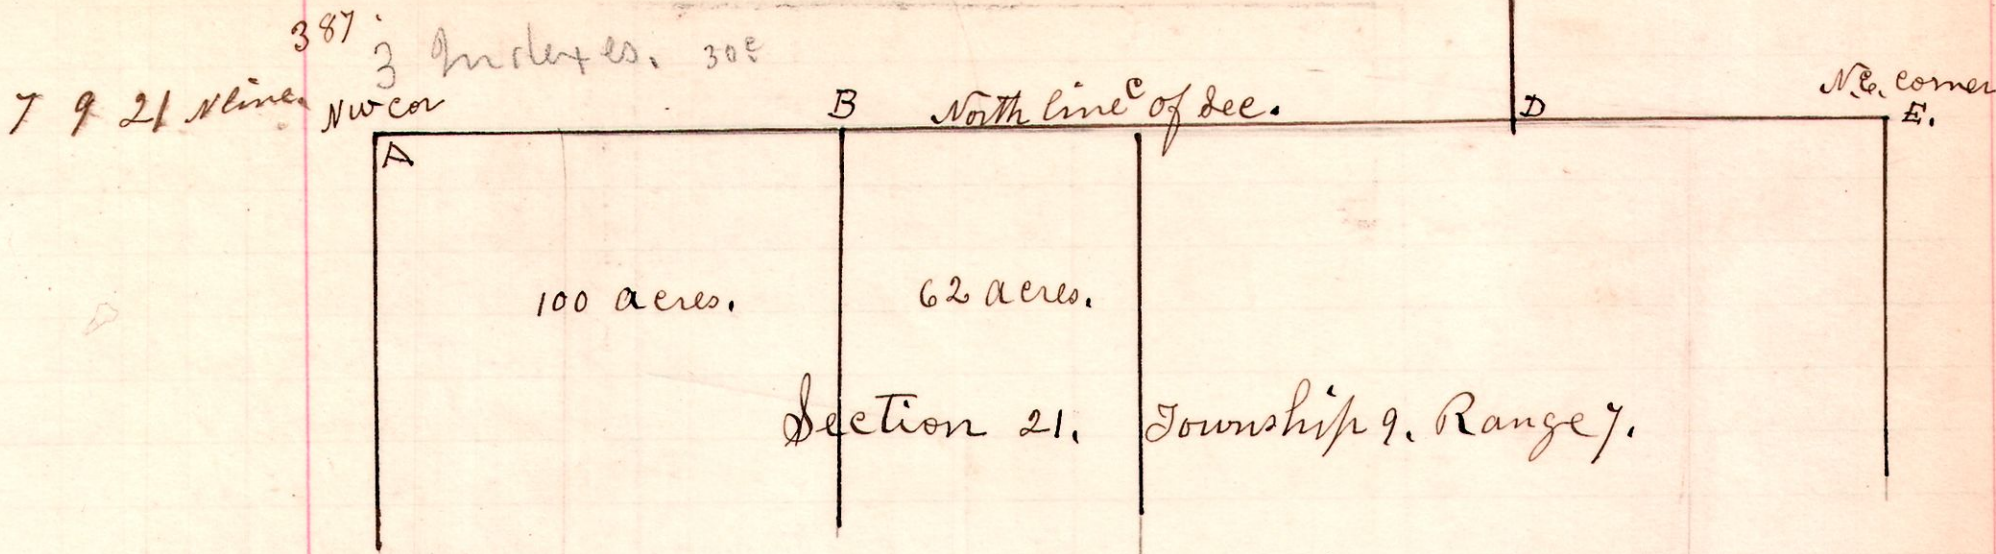 387
3 Indexes. 30c
7 9 21 N line. NW cor B North line C of Sec. D N.E. corner
A E.
100 acres. 62 acres.
Section 21. Township 9. Range 7.